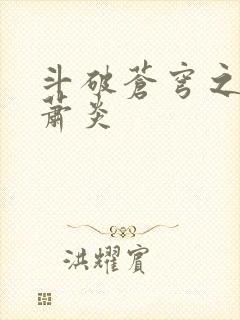 斗破苍穹之
萧炎
洪耀宾